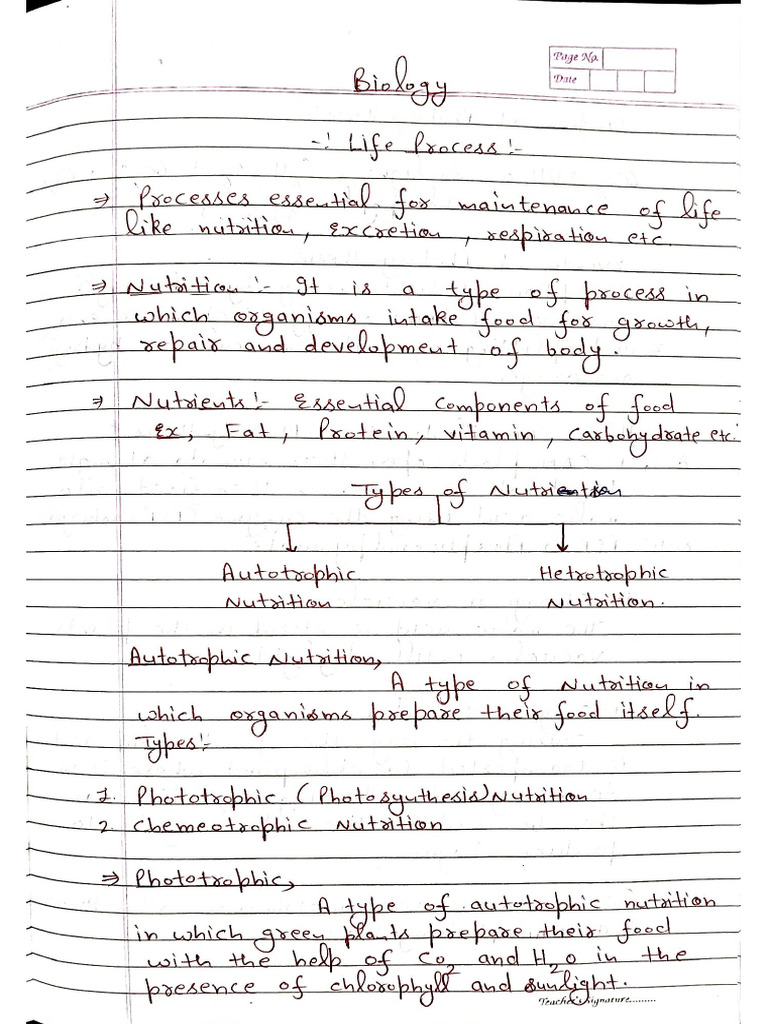 Page No.
Date
Biology
-: Life Process :-
⇒ Processes essential for maintenance of life
like nutrition, Excretion, respiration etc.
⇒ Nutrition :- It is a type of process in
which organisms intake food for growth,
repair and development of body.
⇒ Nutrients :- Essential components of food
Ex, Fat, Protein, vitamin, carbohydrate etc.
Types of
Autotrophic Hetrotrophic
Nutrition Nutrition.
Autotrophic Nutrition,
A type of Nutrition in
which organisms prepare their food itself.
Types :-
1. Phototrophic (Photosynthesis) Nutrition
2. Chemeotrophic Nutrition
⇒ Phototrophic,
A type of autotrophic nutrition
in which green plants prepare their food
with the help of Co2 and H2O in the
presence of chlorophyll and sunlight.
Teacher's Signature.........